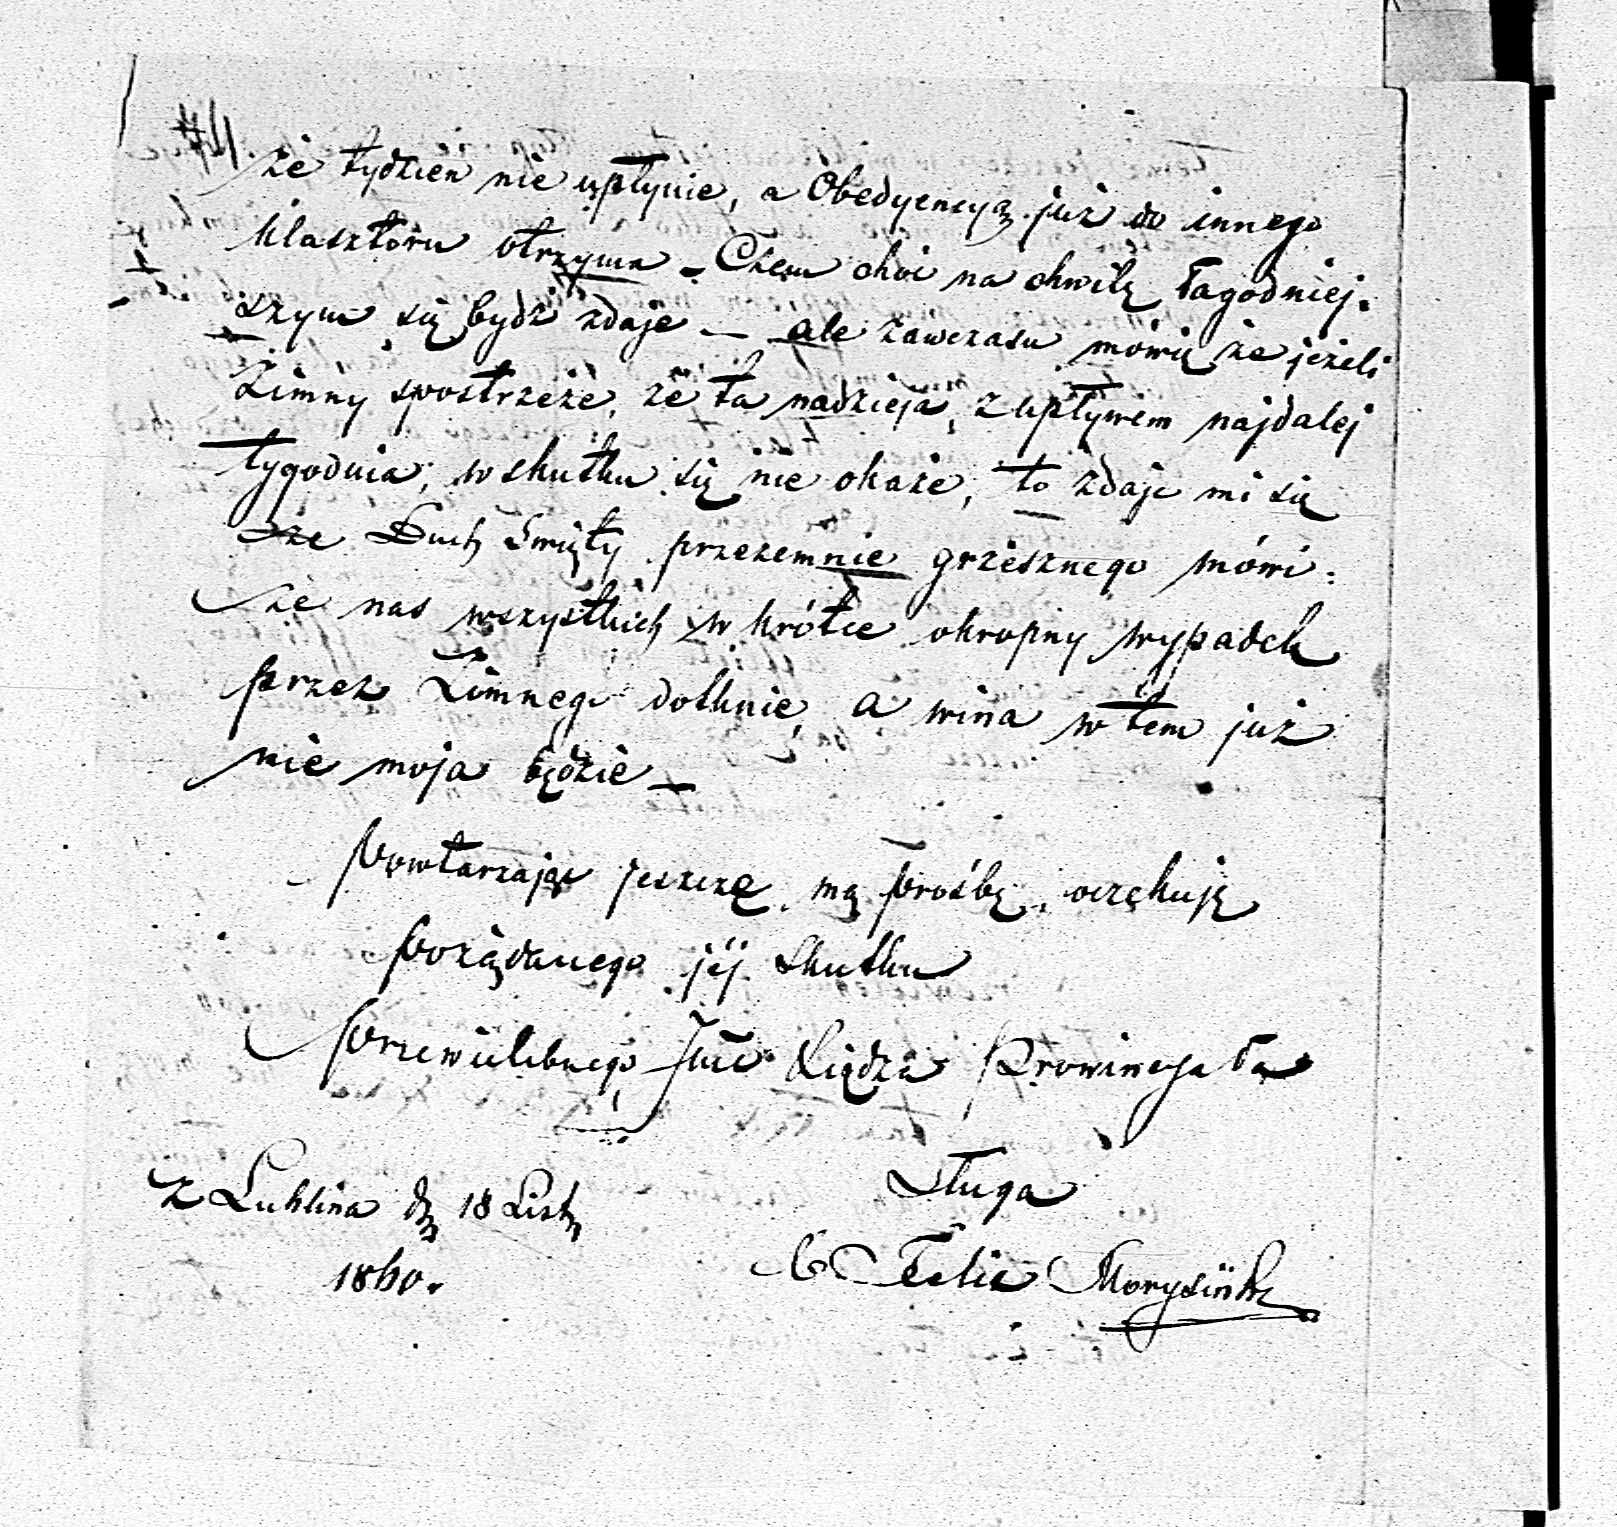 że tydzien nie upłynie, a Obedyencyą już do innego
klasztoru otrzyma – Czem choi na chwilę łagodniej-
szym się bydź zdaje – ale zawczasu mówię że jeżeli
Zimny spostrzeże, że ta nadzieja, z upływem najdalej
tygodnia, w skutku się nie okaże, to zdaje mi się
że Duch Święty przezemnie grzesznego mówi:
że nas wszystkich w krótce okropny wypadek
przez Zimnego dotknie, a wina w tem już
nie moja będzie –
Powtarzając jeszcze mą prośbę, oczekuję
pożądanego jéj skutku
Przewielebnego Jmć Xiędza Prowincyała
Sługa
Z Lublina d. 18 List.
X Felix Morysiński
1860.